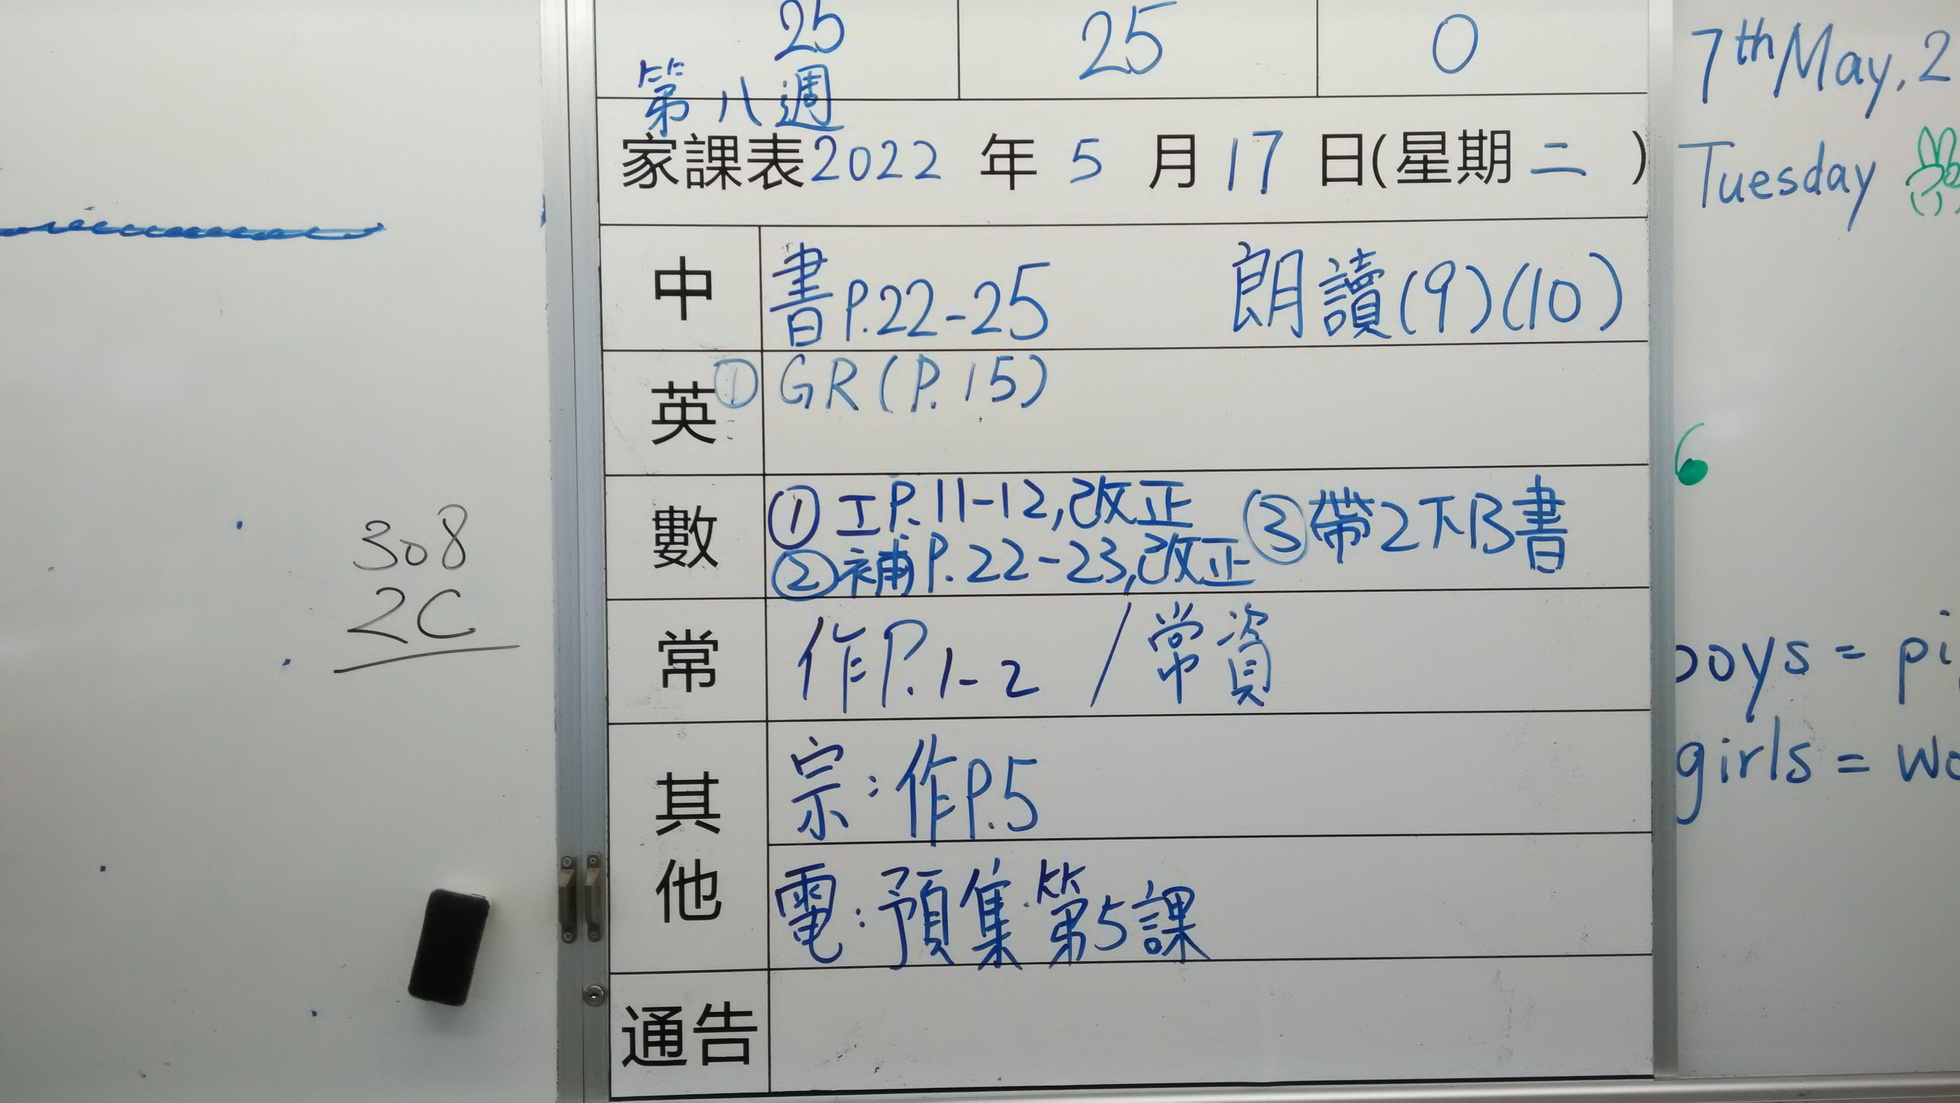 25 25 0
第八週
家課表2022年5月17日(星期二)
中 書P.22-25 朗讀(9)(10)
英 ① GR(P.15)
數 ①工P.11-12,改正 ③帶2下B書
②補P.22-23,改正
常 作P.1-2 / 常資
其他 宗:作P.5
電:預集第5課
通告
308
2C
7th May, 2
Tuesday
6
boys = pi
girls = wo